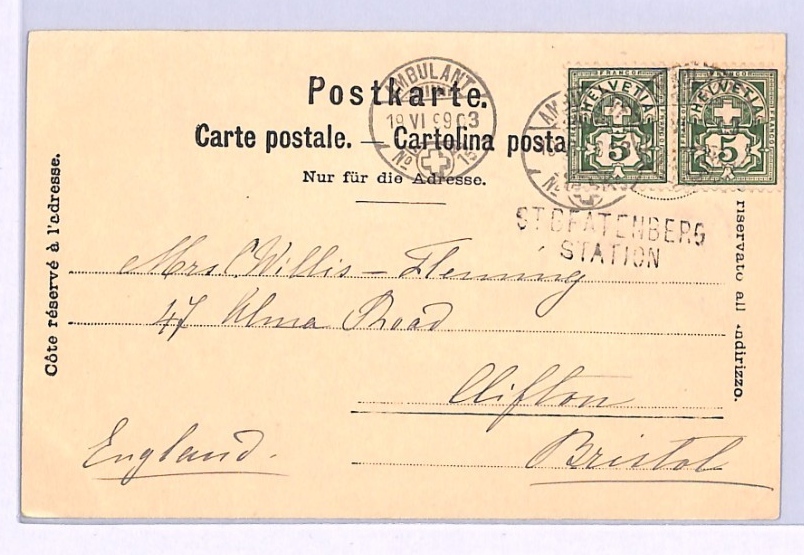 Postkarte.
Carte postale. — Cartolina posta
Nur für die Adresse.
AMBULANT
19 VI 03
No 15
FRANCO
HELVETIA
5
FRANCO
HELVETIA
5
ST BEATENBERG
STATION
Côte réservé à l'adresse.
riservato all indirizzo.
Mrs Willis-Fleming
47 Alma Road
Clifton
Bristol
England.